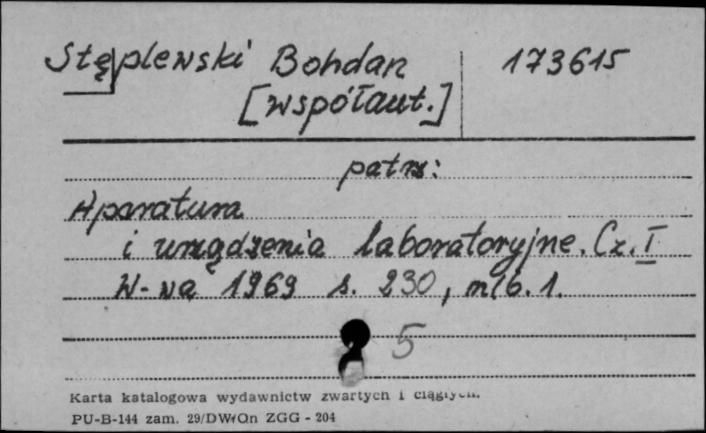 Stęplewski Bohdan 173615
[współaut.]
patrz:
Aparatura
i urządzenia laboratoryjne. Cz. I
W-wa 1969 s. 230, nlb. 1.
5
Karta katalogowa wydawnictw zwartych i ciągłych.
PU-B-144 zam. 29/DWiOn ZGG - 204